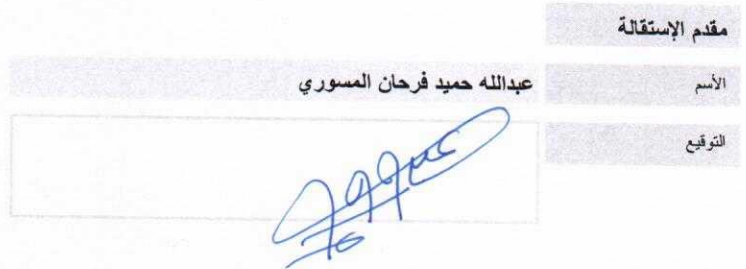 مقدم الإستقالة
الأسم
عبدالله حميد فرحان المسوري
التوقيع